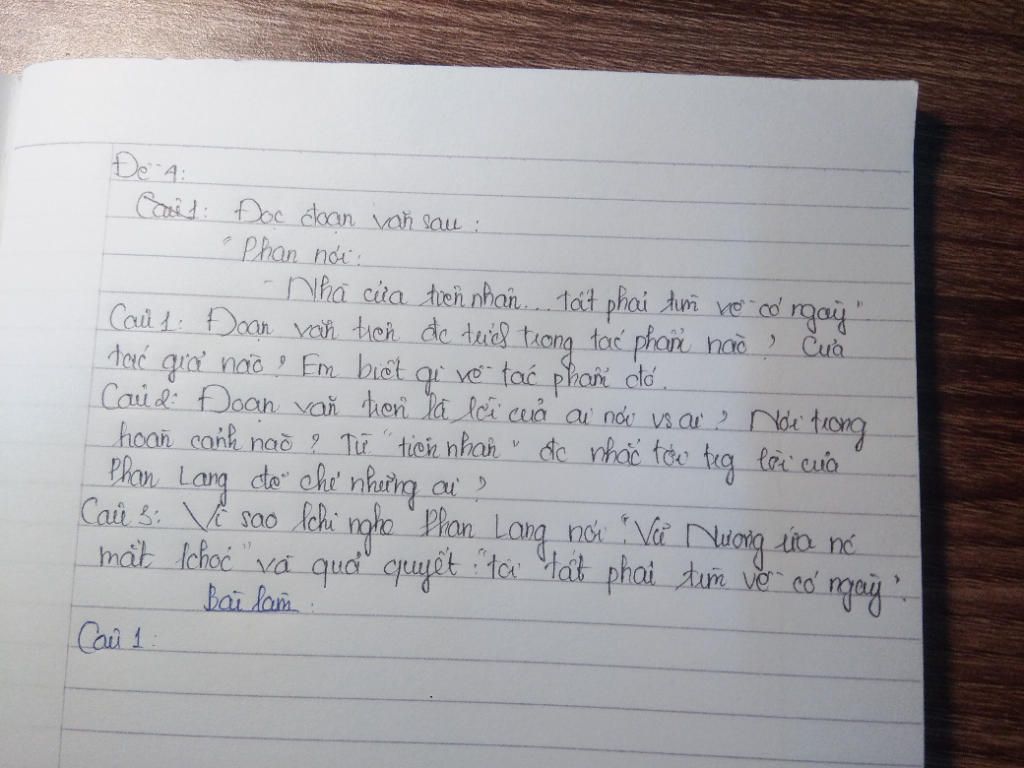 Đề 4:
Câu 1: Đọc đoạn văn sau:
"Phan nói:
- Nhà cửa tiên nhân... tất phải tìm về có ngày"
Câu 1: Đoạn văn trên đc trích trong tác phẩm nào? Của
tác giả nào? Em biết gì về tác phẩm đó.
Câu 2: Đoạn văn trên là lời của ai nói vs ai? Nói trong
hoàn cảnh nào? Từ "tiên nhân" đc nhắc tới trg lời của
Phan Lang để chỉ những ai?
Câu 3: Vì sao khi nghe Phan Lang nói "Vũ Nương ứa nc
mắt khóc" và quả quyết: "tôi tất phải tìm về có ngày".
Bài làm:
Câu 1: